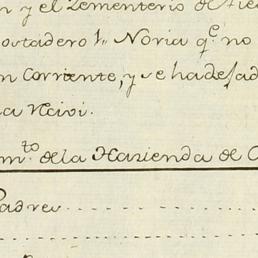 n y el Zementerio de
ostadero 1,, Noria q.e no
n Corriente, y se ha dejad
na Navi.
m.to de la Hazienda de C
Padres